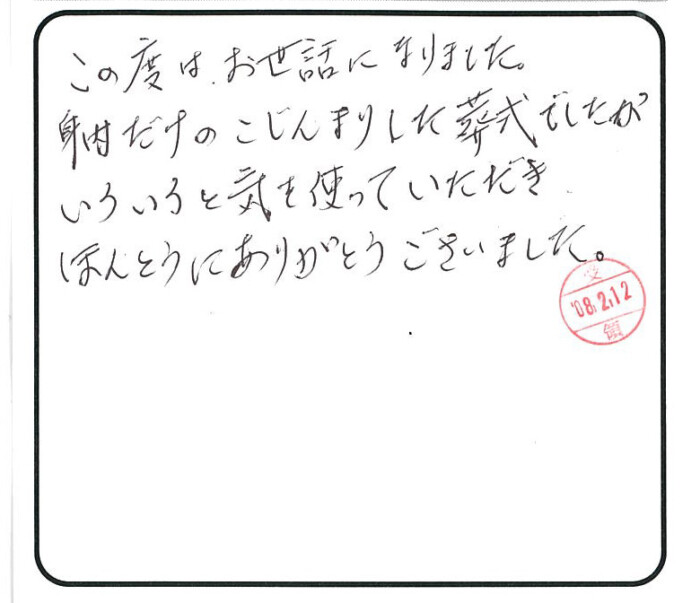 この度は、お世話になりました。
身内だけのこじんまりした葬式でしたが
いろいろと気を使っていただき
ほんとうにありがとうございました。
受
'08.2.12
領